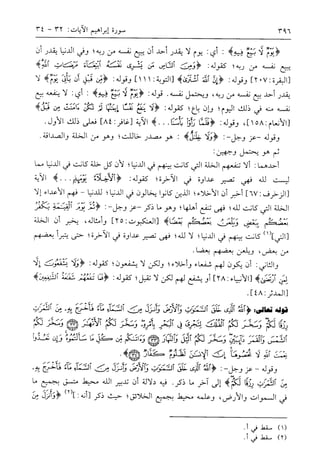 ٣٩٦ سورة إبراهيم الآيات: ٣٢ - ٣٤
﴿يَوْمٌ لَا بَيْعٌ فِيهِ﴾: أي: يوم لا يقدر أحد أن يبيع نفسه من ربه؛ وفي الدنيا يقدر أن
يبيع نفسه من ربه؛ كقوله: ﴿وَمِنَ النَّاسِ مَن يَشْرِي نَفْسَهُ ابْتِغَاءَ مَرْضَاتِ اللَّهِ﴾
[البقرة: ٢٠٧] وقوله: ﴿إِنَّ اللَّهَ اشْتَرَى﴾ [التوبة: ١١١] وقوله: ﴿مِن قَبْلِ أَن يَأْتِيَ يَوْمٌ لَا
يقدر أحد بيع نفسه من ربه، ويحتمل نفسه. قوله: ﴿يَوْمٌ لَا بَيْعٌ فِيهِ﴾ أي: لا ينفعه بيع
نفسه منه في ذلك اليوم؛ وإن باع؛ كقوله: ﴿لَا يَنفَعُ نَفْسًا إِيمَانُهَا لَمْ تَكُنْ آمَنَتْ مِن قَبْلُ﴾
[الأنعام: ١٥٨]، وقوله: ﴿فَلَمَّا رَأَوْا بَأْسَنَا...﴾ الآية [غافر: ٨٤] فعلى ذلك الأول.
وقوله -عز وجل-: ﴿وَلَا خِلَالٌ﴾: هو مصدر خاللت؛ وهو من الخلة والصداقة.
ثم هو يحتمل وجهين:
أحدهما: ألا تنفعهم الخلة التي كانت بينهم في الدنيا؛ لأن كل خلة كانت في الدنيا مما
ليست لله فهي تصير عداوة في الآخرة؛ كقوله: ﴿الْأَخِلَّاءُ يَوْمَئِذٍ...﴾ الآية
[الزخرف: ٦٧] أخبر أن الأخلاء: الذين كانوا يخالون في الدنيا؛ للدنيا - فهم الأعداء إلا
الخلة التي كانت لله؛ فهي تنفع أهلها؛ وهو ما ذكر -عز وجل-: ﴿ثُمَّ يَوْمَ الْقِيَامَةِ يَكْفُرُ
بَعْضُكُم بِبَعْضٍ وَيَلْعَنُ بَعْضُكُم بَعْضًا﴾ [العنكبوت: ٢٥] وأمثاله، يخبر أن الخلة
[التي](١) كانت بينهم في الدنيا؛ لا لله؛ فهي تصير عداوة في الآخرة؛ حتى يتبرأ بعضهم
من بعض، ويلعن بعضهم بعضا.
والثاني: أن يكون لهم شفعاء وأخلاء؛ ولكن لا يشفعون؛ كقوله: ﴿وَلَا يَشْفَعُونَ إِلَّا
لِمَنِ ارْتَضَى﴾ [الأنبياء: ٢٨] أو يشفع لهم لكن لا تقبل؛ كقوله: ﴿فَمَا تَنفَعُهُمْ شَفَاعَةُ الشَّافِعِينَ﴾
[المدثر: ٤٨].
قوله تعالى: ﴿اللَّهُ الَّذِي خَلَقَ السَّمَاوَاتِ وَالْأَرْضَ وَأَنزَلَ مِنَ السَّمَاءِ مَاءً فَأَخْرَجَ بِهِ مِنَ الثَّمَرَاتِ
رِزْقًا لَّكُمْ وَسَخَّرَ لَكُمُ الْفُلْكَ لِتَجْرِيَ فِي الْبَحْرِ بِأَمْرِهِ وَسَخَّرَ لَكُمُ الْأَنْهَارَ وَسَخَّرَ لَكُمُ
الشَّمْسَ وَالْقَمَرَ دَائِبَيْنِ وَسَخَّرَ لَكُمُ اللَّيْلَ وَالنَّهَارَ وَآتَاكُم مِّن كُلِّ مَا سَأَلْتُمُوهُ وَإِن تَعُدُّوا
نِعْمَتَ اللَّهِ لَا تُحْصُوهَا إِنَّ الْإِنسَانَ لَظَلُومٌ كَفَّارٌ﴾.
وقوله - عز وجل -: ﴿اللَّهُ الَّذِي خَلَقَ السَّمَاوَاتِ وَالْأَرْضَ وَأَنزَلَ مِنَ السَّمَاءِ مَاءً فَأَخْرَجَ بِهِ
مِنَ الثَّمَرَاتِ رِزْقًا لَّكُمْ﴾ إلى آخر ما ذكر. فيه دلالة أن تدبير الله محيط متسق بجميع ما
في السموات والأرض، وعلمه محيط بجميع الخلائق؛ حيث ذكر [أنه:](٢) ﴿وَأَنزَلَ مِنَ
(١) سقط في أ.
(٢) سقط في أ.